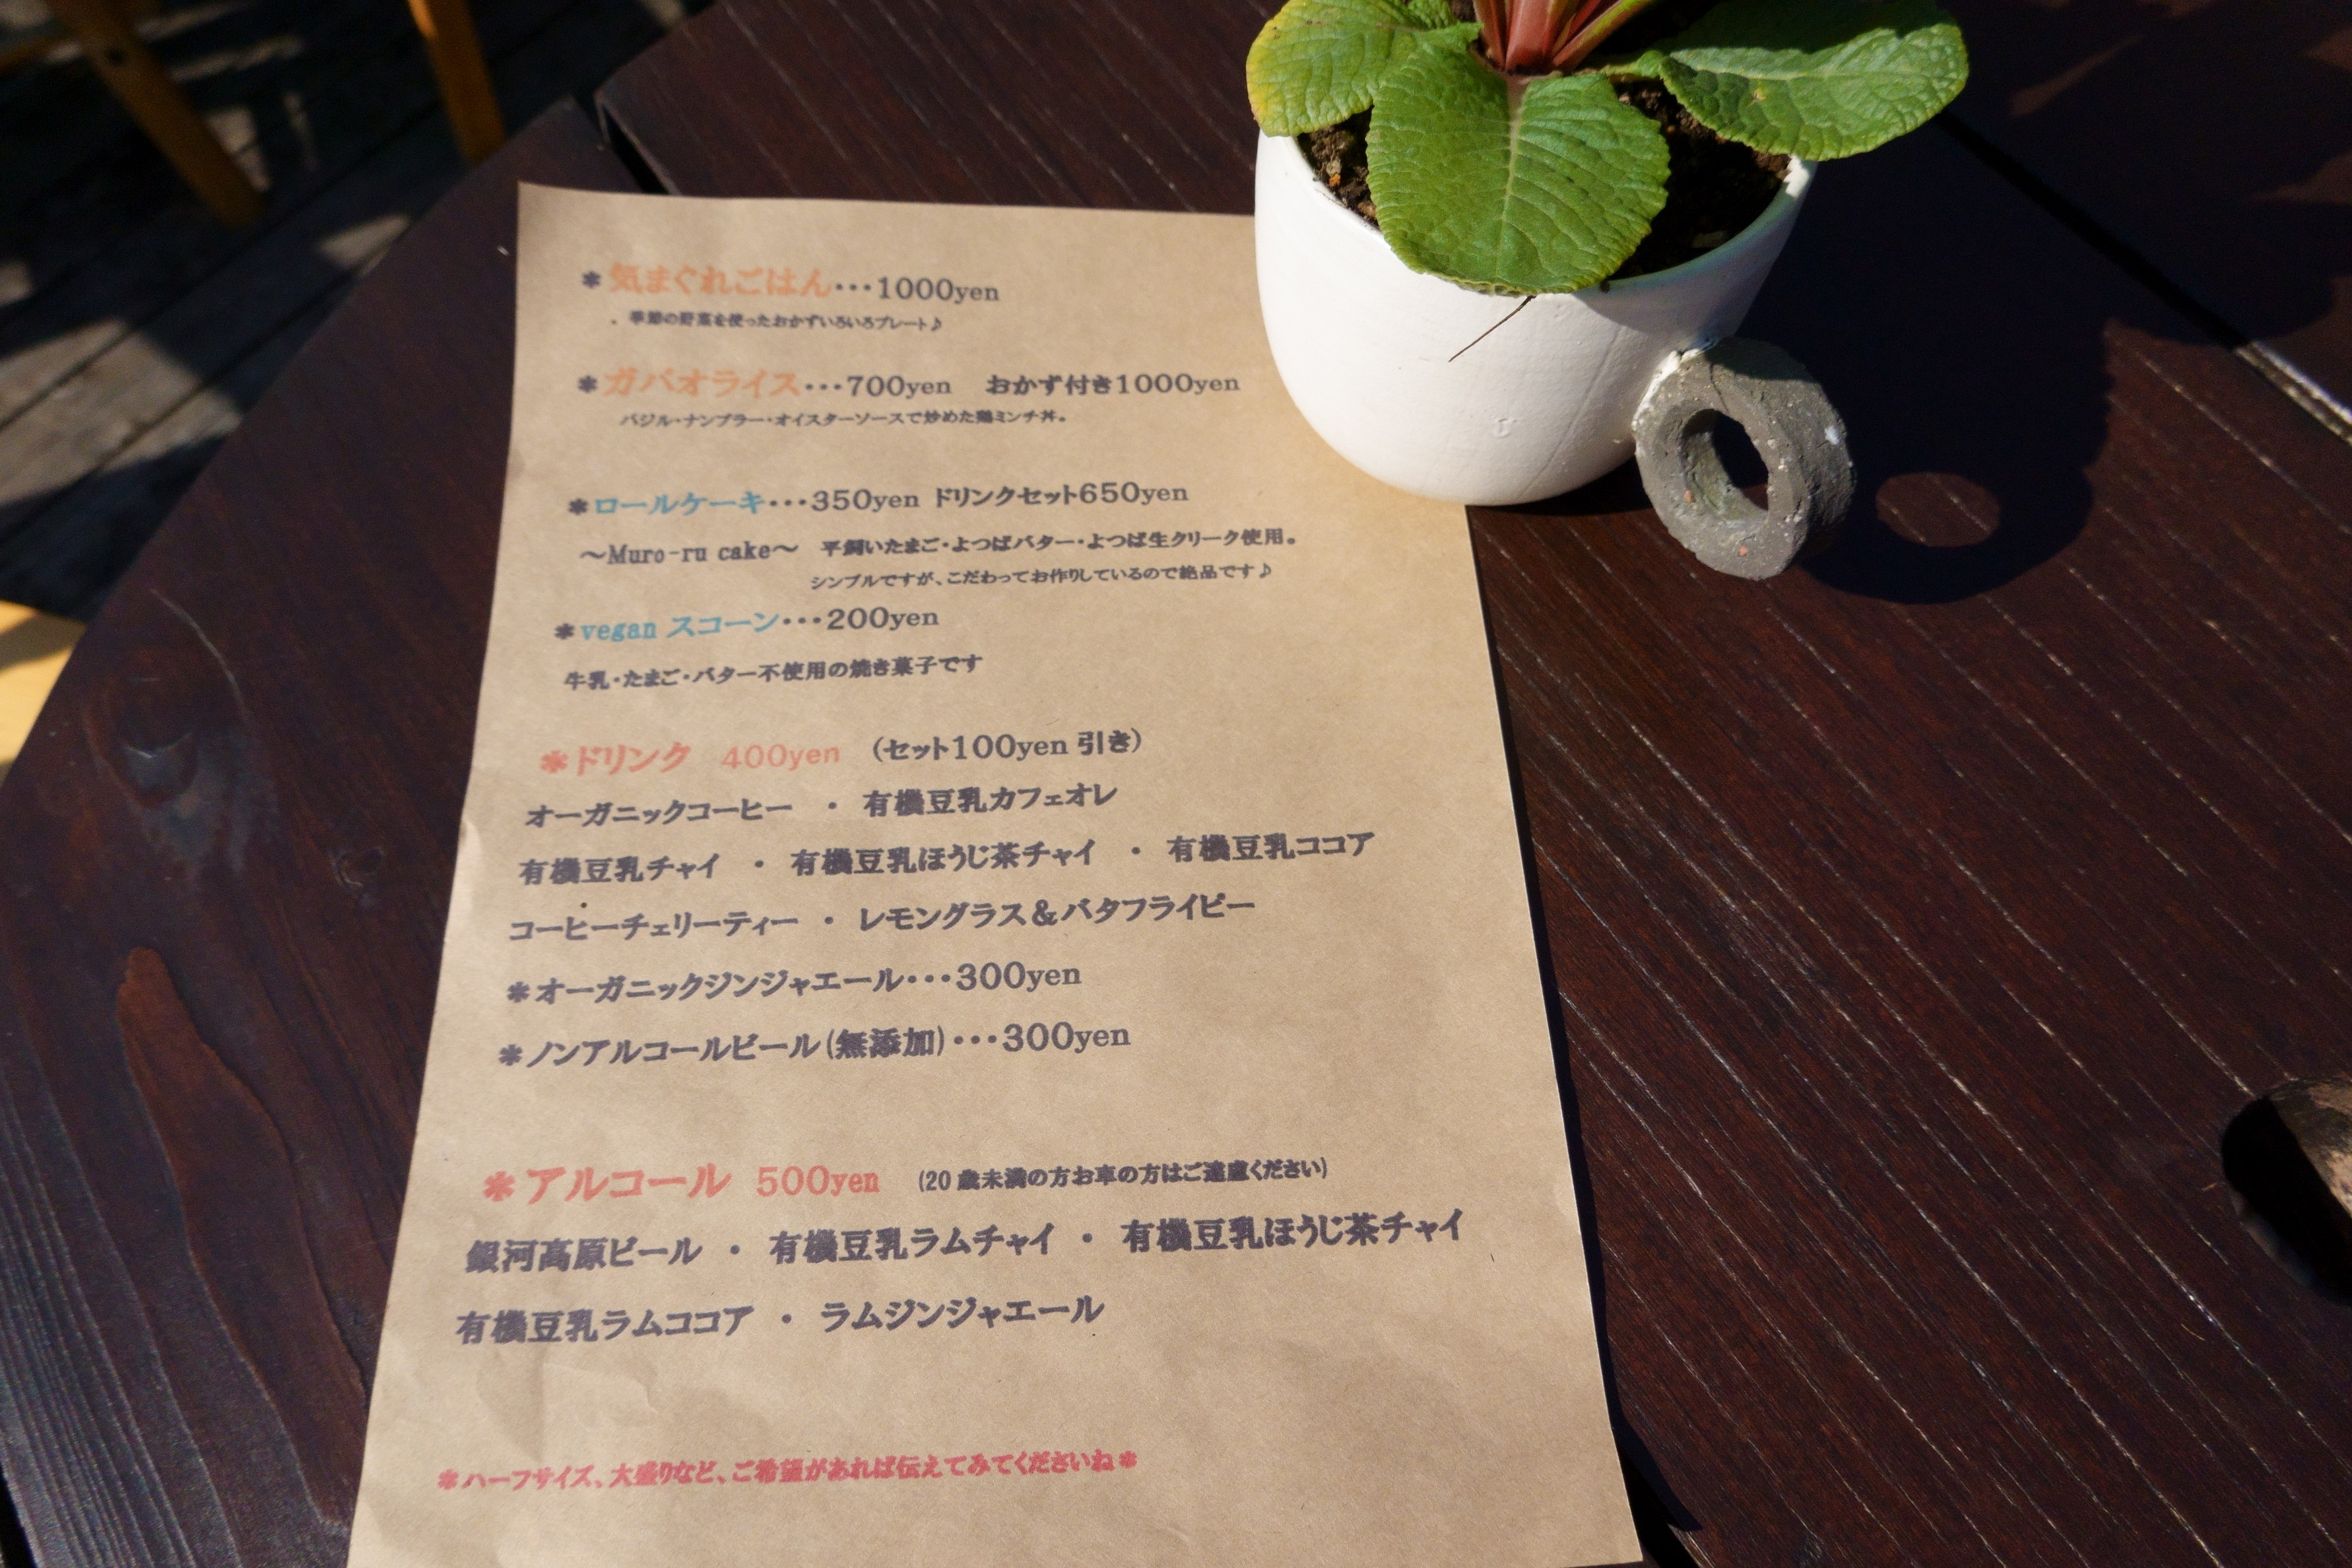 ＊気まぐれごはん・・・1000yen
季節の野菜を使ったおかずいろいろプレート♪
＊ガパオライス・・・700yen　おかず付き1000yen
バジル・ナンプラー・オイスターソースで炒めた鶏ミンチ丼。
＊ロールケーキ・・・350yen ドリンクセット650yen
～Muro-ru cake～　平飼いたまご・よつばバター・よつば生クリーク使用。
シンプルですが、こだわってお作りしているので絶品です♪
＊vegan スコーン・・・200yen
牛乳・たまご・バター不使用の焼き菓子です
＊ドリンク　400yen　（セット100yen 引き）
オーガニックコーヒー　・　有機豆乳カフェオレ
有機豆乳チャイ　・　有機豆乳ほうじ茶チャイ　・　有機豆乳ココア
コーヒーチェリーティー　・　レモングラス＆バタフライピー
＊オーガニックジンジャエール・・・300yen
＊ノンアルコールビール(無添加)・・・300yen
＊アルコール　500yen　(20 歳未満の方お車の方はご遠慮ください)
銀河高原ビール　・　有機豆乳ラムチャイ　・　有機豆乳ほうじ茶チャイ
有機豆乳ラムココア　・　ラムジンジャエール
＊ハーフサイズ、大盛りなど、ご希望があれば伝えてみてくださいね＊